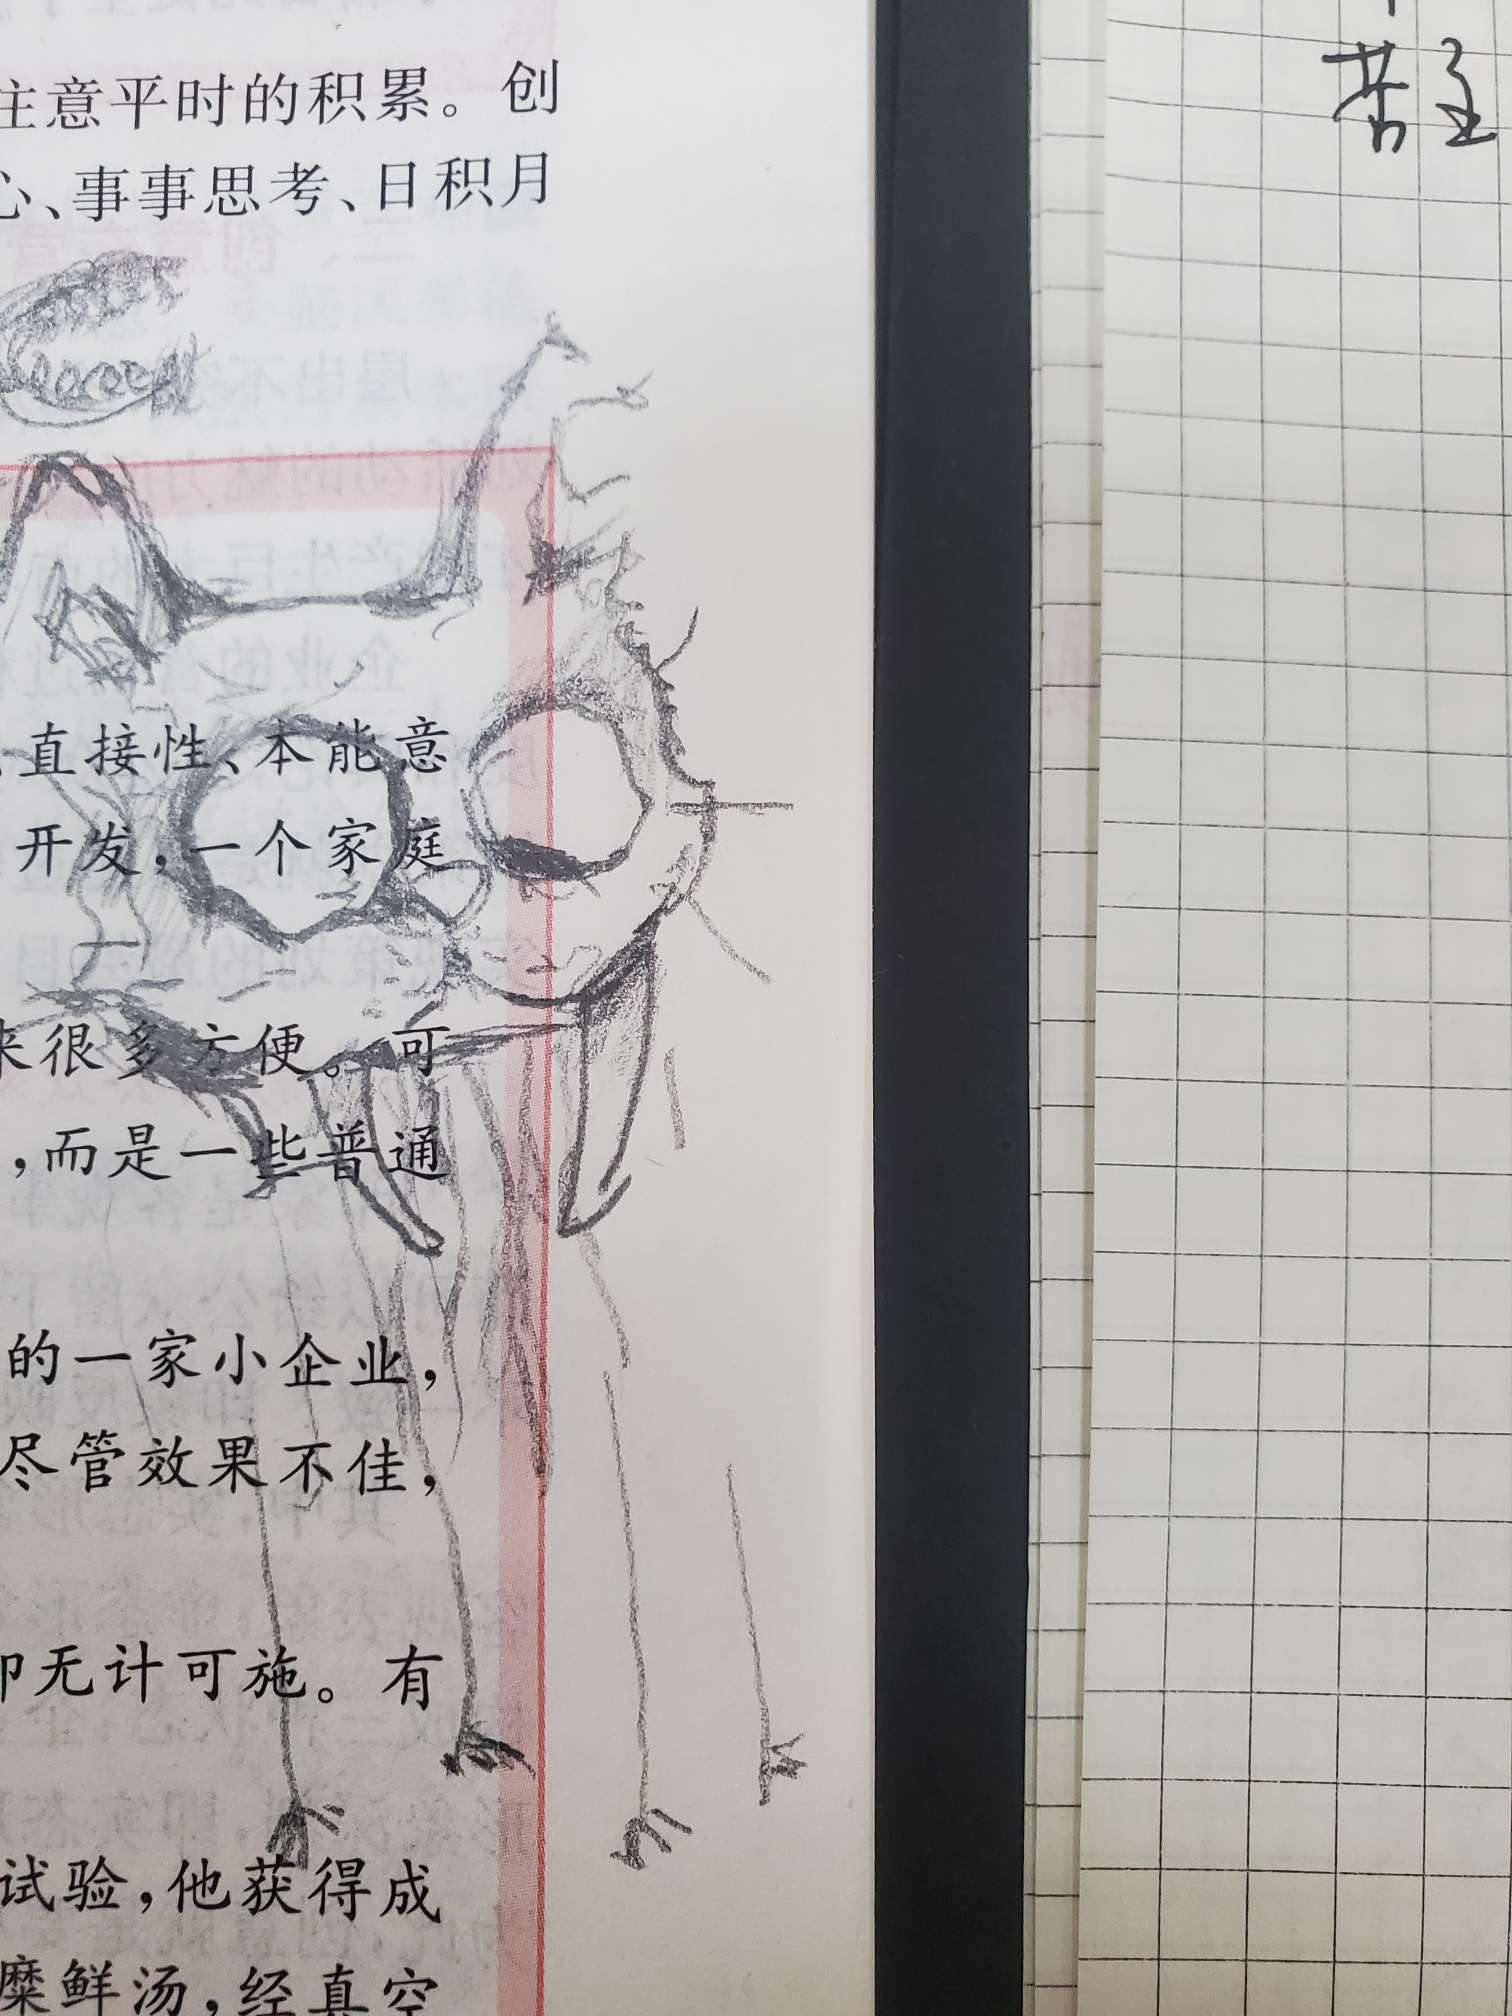 注意平时的积累。创
心、事事思考、日积月
直接性、本能意
开发，一个家庭
来很多方便。可
，而是一些普通
的一家小企业，
尽管效果不佳，
却无计可施。有
试验，他获得成
糜鲜汤，经真空